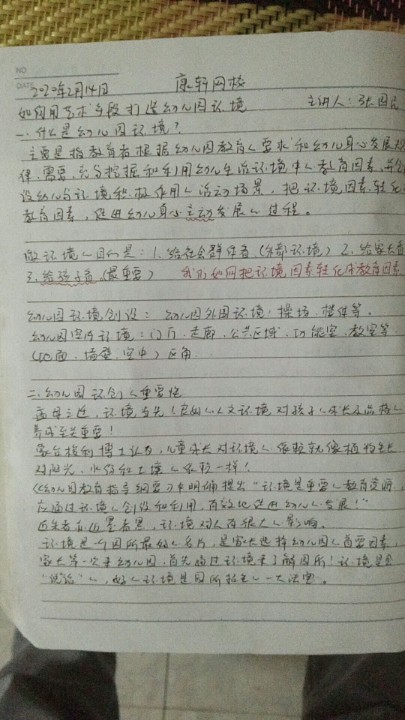 NO
DATE
2020年2月14日 康轩网校
如何用艺术手段打造幼儿园环境 主讲人:张国民
一.什么是幼儿园环境?
主要是指教育者根据幼儿园教育的要求和幼儿身心发展规
律、需要,充分挖掘和利用幼儿生活环境中的教育因素,并创
设幼儿与环境积极作用的活动场景,把环境因素转化
教育因素,促进幼儿身心主动发展的过程。
做环境的目的是:1.给社会群体看(外部环境) 2.给家长看
3.给孩子看(最重要) 如何把环境因素转化为教育因素
幼儿园环境创设: 幼儿园外围环境、操场、楼体等,
幼儿园室内环境:门厅、走廊、公共区域、功能室、教室等
(地面、墙壁、空中) 区角
二.幼儿园环创的重要性
孟母三迁,环境为先(良好的人文环境对孩子的成长及品格的
养成至关重要!
蒙台梭利博士认为,儿童成长对环境的依赖就像植物生长
对阳光、水份和土壤的依赖一样!
《幼儿园教育指导纲要》中明确提出“环境是重要的教育资源,
应通过环境的创设和利用,有效地促进幼儿的发展!”
近朱者赤近墨者黑,环境对人有很大的影响。
环境是一个园所最好的名片,是家长选择幼儿园的首要因素,
家长第一次来幼儿园,首先通过环境来了解园所!环境是会
“说话”的,好的环境是园所招生的一大法宝。